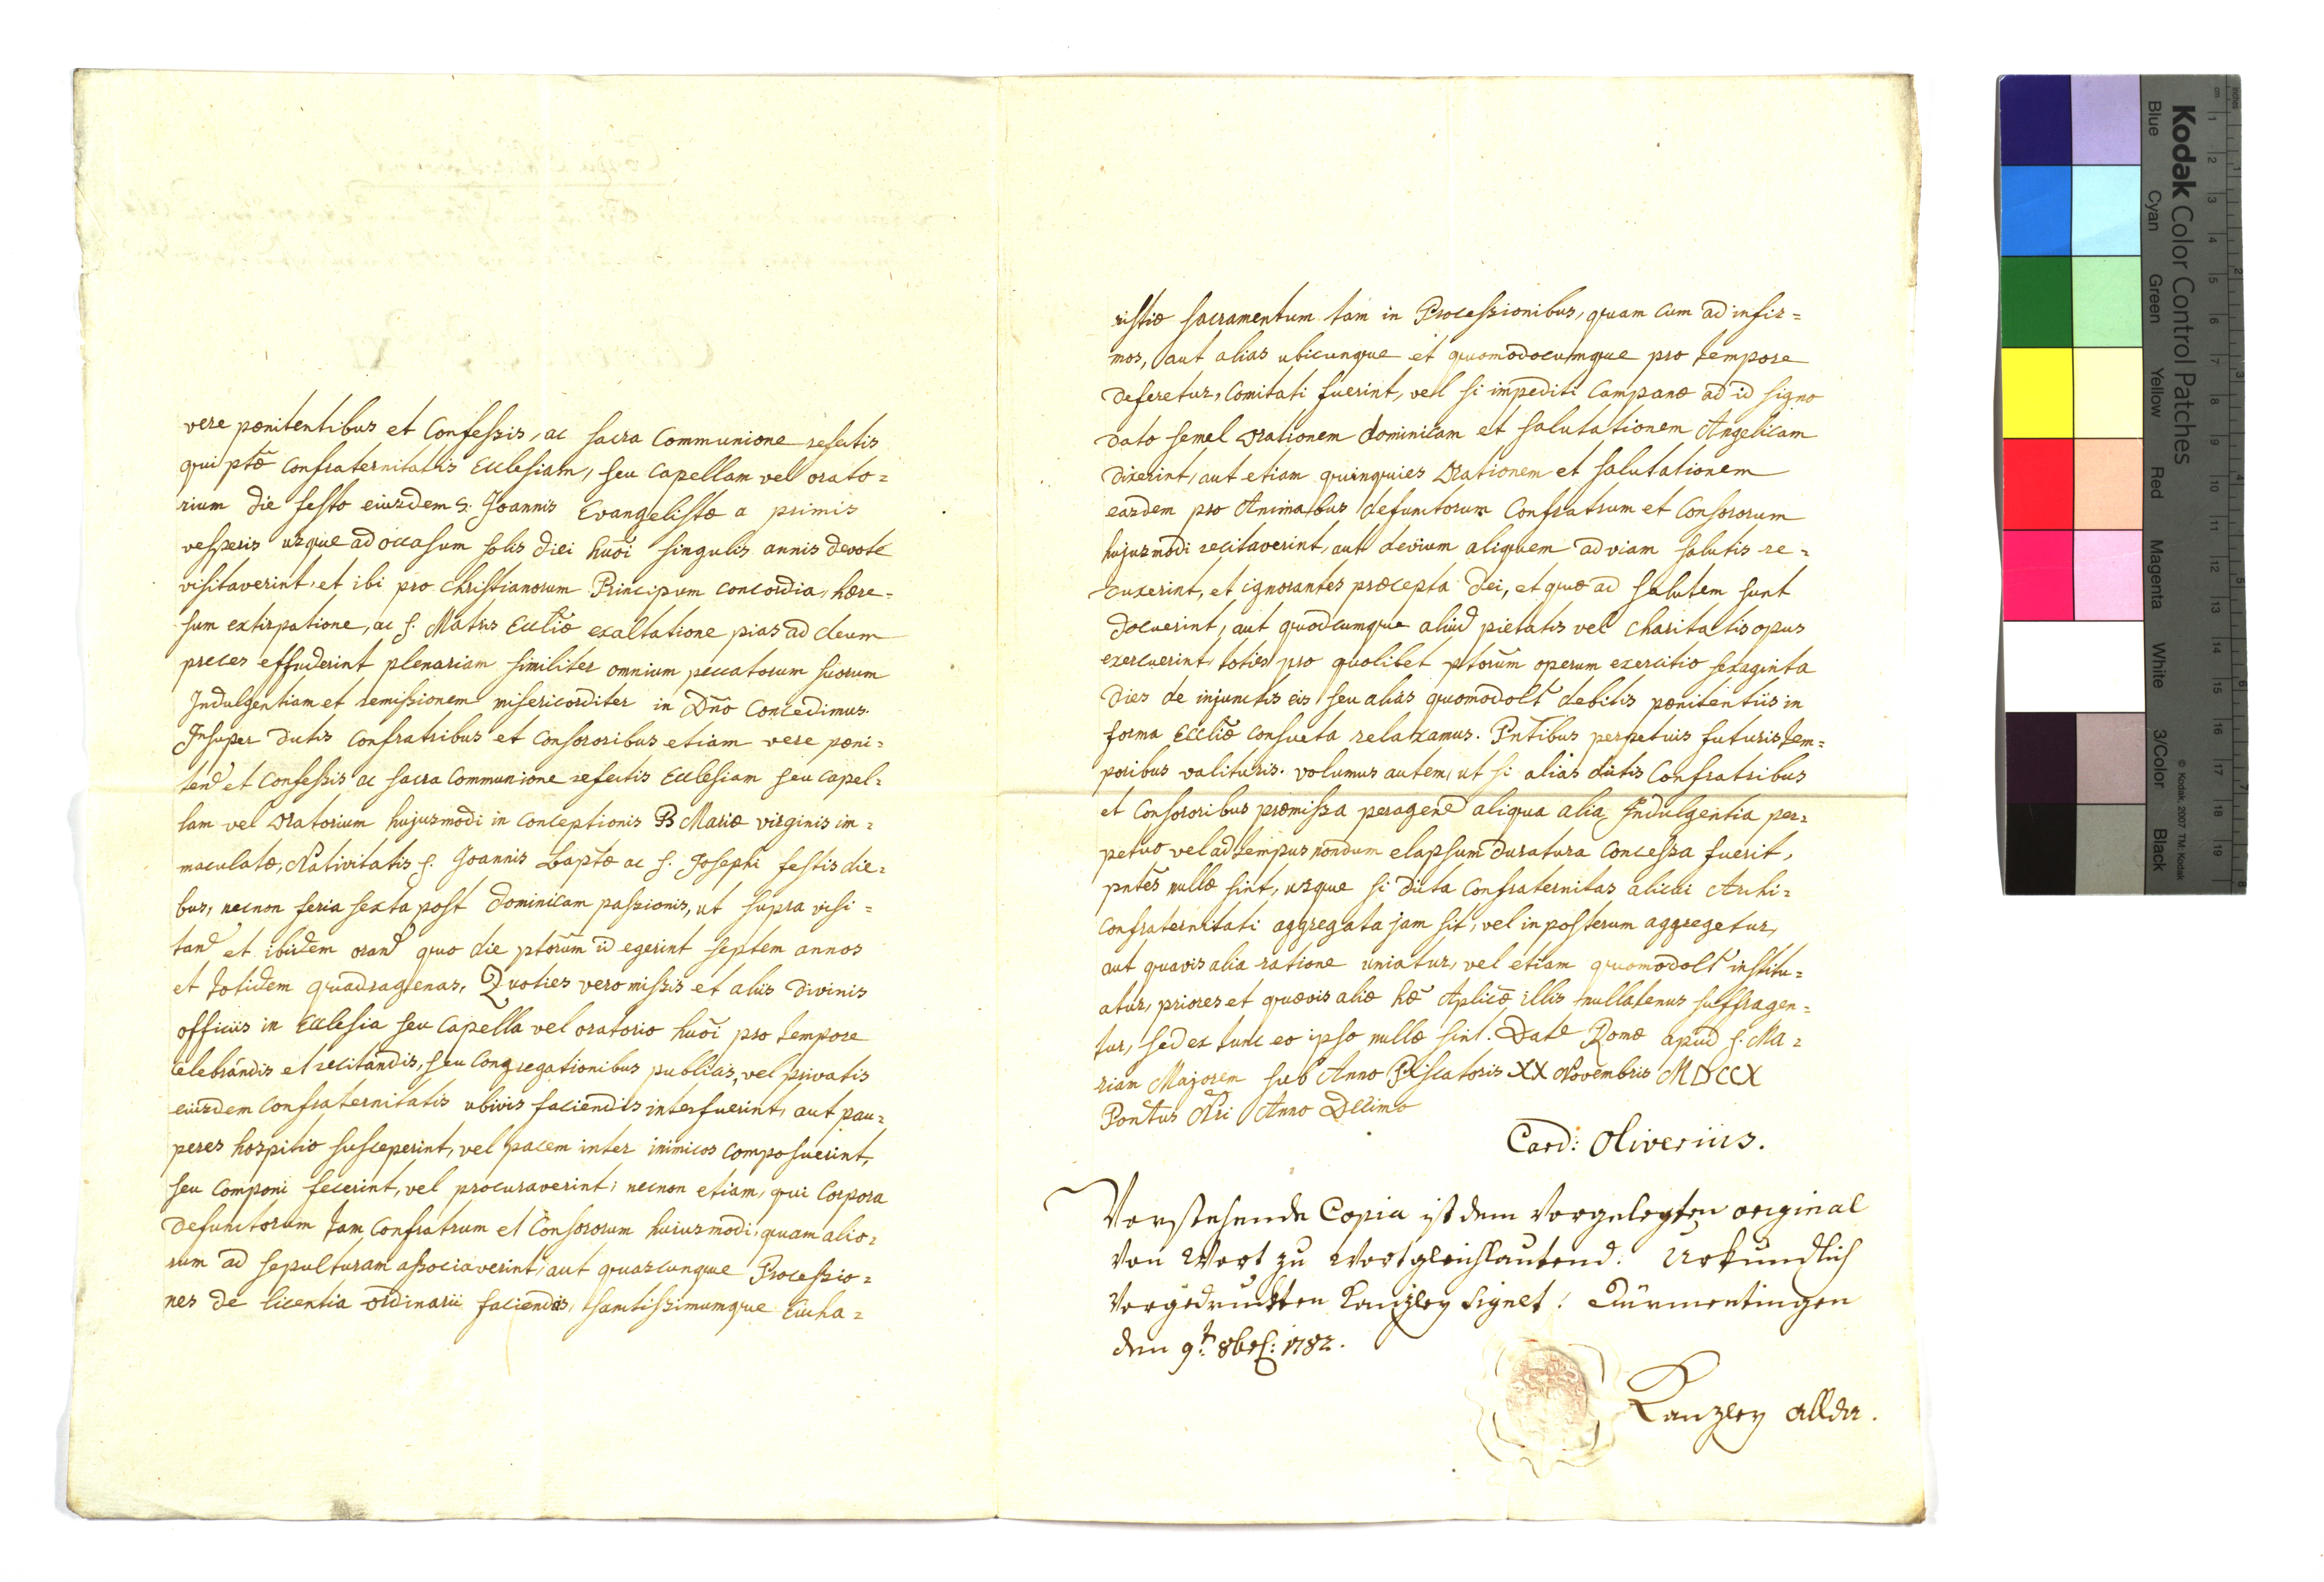 vere pœnitentibus et Confessis, ac sacra Communione refectis
qui ptæ Confraternitatis Ecclesiam, seu Capellam vel orato=
rium die festo eiusdem S. Joannis Evangelistæ a primis
vesperis usque ad occasum solis diei huõi singulis annis devote
visitaverint, et ibi pro christianorum Principum concordia, hære=
sum extirpatione, ac S. Matris Eccliæ exaltatione pias ad deum
preces effuderint plenariam similiter omnium peccatorum suorum
Indulgentiam et remissionem misericorditer in Dño Concedimus.
Insuper dictis Confratribus et Consororibus etiam vere pœni=
tend et Confessis ac sacra Communione refectis Ecclesiam seu Capel=
lam vel Oratorium hujusmodi in Conceptionis B Mariæ virginis im=
maculatæ, Nativitatis S. Joannis Baptæ ac S. Josephi festis die=
bus, necnon feria sexta post dominicam passionis, ut supra visi=
tand et ibidem orand quo die ptorum id egerint septem annos
et totidem quadragenas, Quoties vero missis et aliis divinis
officiis in Ecclesia seu Capella vel oratorio huõi pro tempore
celebrandis et recitandis, seu Congregationibus publicis, vel privatis
eiusdem Confraternitatis ubivis faciendis interfuerint, aut pau=
peres hospitio susceperint, vel pacem inter inimicos composuerint,
seu componi fecerint, vel procuraverint; necnon etiam, qui Corpora
defunctorum tam Confratrum et Consororum huiusmodi, quam alio=
rum ad sepulturam associaverint, aut quascunque Processio=
nes de licentia ordinarii faciendas, sanctissimumque Eucha=
ristiæ sacramentum tam in Processionibus, quam cum ad infir=
mos, aut alias ubicunque et quomodocumque pro tempore
deferetur, Comitati fuerint, vel si impediti Campanæ ad id signo
dato semel Orationem dominicam et salutationem Angelicam
dixerint, aut etiam quinquies Orationem et salutationem
easdem pro Animabus defunctorum Confratrum et Consororum
hujusmodi recitaverint, aut devium aliquem ad viam salutis re=
duxerint, et ignorantes præcepta dei, et quæ ad salutem sunt
docuerint, aut quodcumque aliud pietatis vel charitatis opus
exercuerint, toties pro quolibet ptorum operum exercitio sexaginta
dies de injunctis eis seu alias quomodolt debitis pœnitentiis in
forma Eccliæ consueta relaxamus. Pntibus perpetuis futuris tem=
poribus valituris. volumus autem, ut si alias dictis Confratribus
et Consororibus præmissa peragend aliqua alia Indulgentia per=
petuo vel ad tempus nondum elapsum duratura Concessa fuerit,
pntes nullæ sint, usque si dicta Confraternitas alicui Archi=
confraternitati aggregata jam sit, vel in posterum aggregetur,
aut quavis alia ratione uniatur, vel etiam quomodolt institu=
atur, priores et quævis aliæ hæ Aplicæ illis nullatenus suffragen=
tur, sed ex tunc eo ipso nullæ sint. Datæ Romæ apud S. Ma=
riam Majorem sub Anno Piscatoris XX Novembris MDCCX
Pontus Nri Anno Decimo
Card: Oliverius.
Vorstehende Copia ist dem Vorgelegten original
Von Wort zu Wort gleichlautend. Urkundlich
Vorgedruckten Kanzley Signet! Dürmentingen
den 9t. 8br: 1782.
Kanzley allda.
Kodak Color Control Patches
Blue Cyan Green Yellow Red Magenta White 3/Color Black
© Kodak, 2007 TM: Kodak
inches 1 2 3 4 5 6 7 8
cm 1 2 3 4 5 6 7 8 9 10 11 12 13 14 15 16 17 18 19